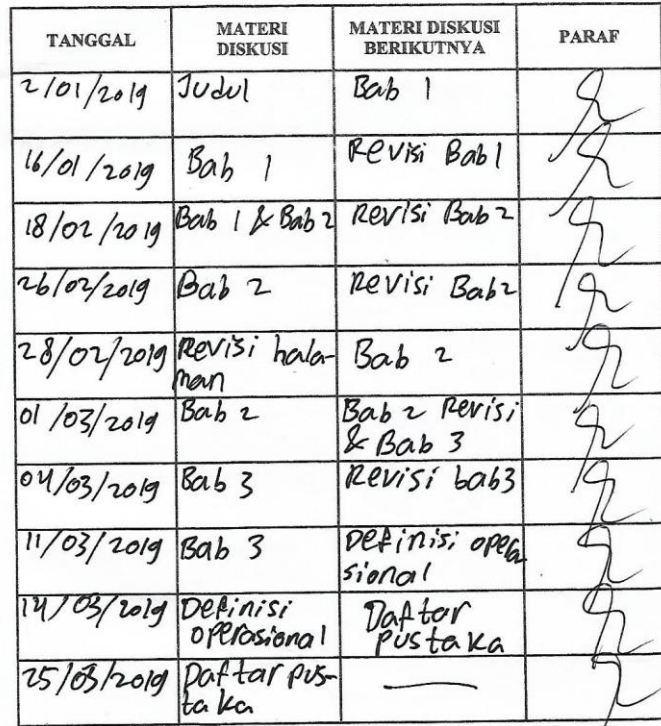 TANGGAL MATERI DISKUSI MATERI DISKUSI BERIKUTNYA PARAF
2/01/2019 Judul Bab 1
16/01/2019 Bab 1 Revisi Bab1
18/02/2019 Bab 1 & Bab 2 Revisi Bab 2
26/02/2019 Bab 2 Revisi Bab2
28/02/2019 Revisi hala-
man Bab 2
01/03/2019 Bab 2 Bab 2 Revisi
& Bab 3
04/03/2019 Bab 3 Revisi bab3
11/03/2019 Bab 3 Definisi opera
sional
14/03/2019 Definisi
operasional Daftar
pustaka
25/03/2019 Daftar pus-
taka —